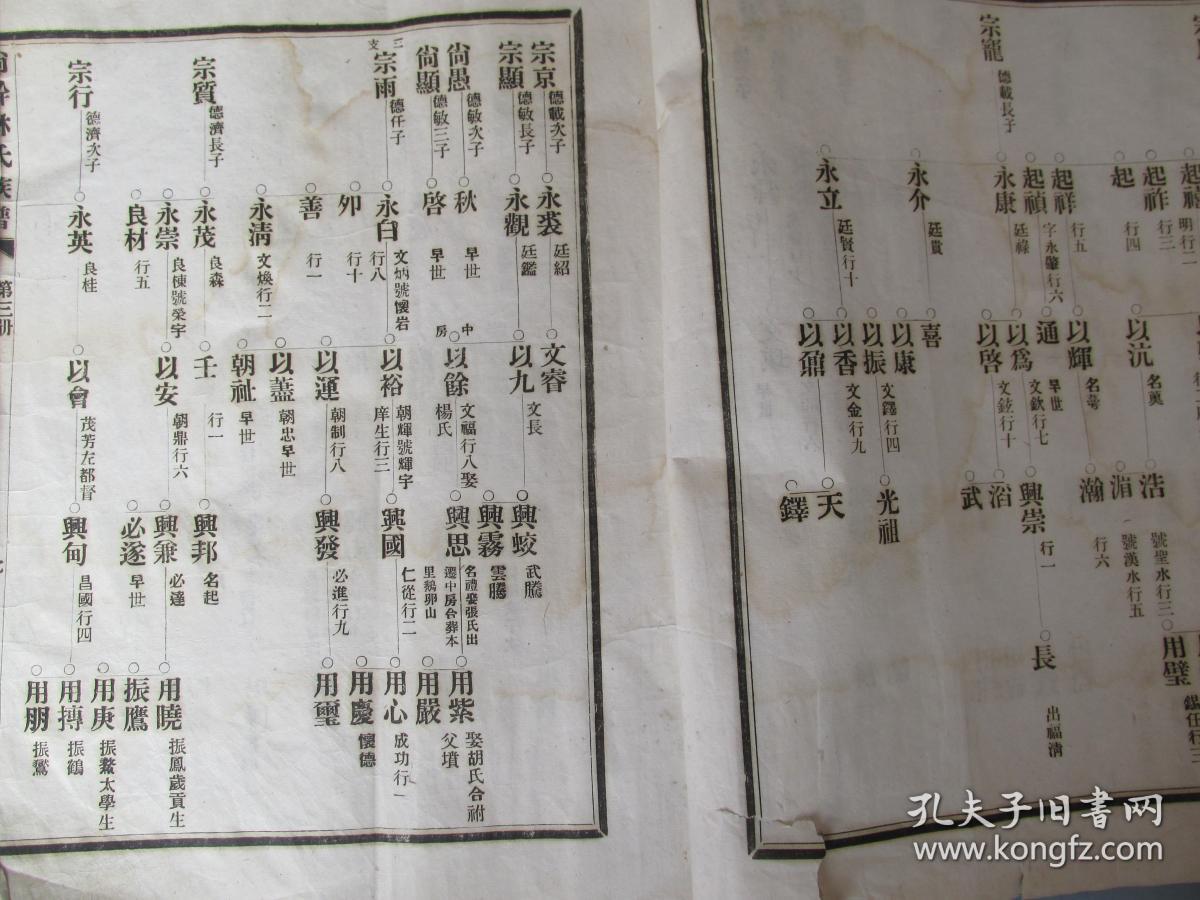 起祥 明行二
起祚 行三
起 行四
起祥 行五
起禎 字永肇行六
宗寵 德載長子
永康 廷祿
永介 廷貴
永立 廷賢行十
以沆 名奠
以輝
通 早世
以爲 文欽行七
以啓 文鉉行十
喜
以康
以振 文鐸行四
以香 文金行九
以鼐
浩 號聖水行三
湄 號漢水行五
瀚 行六
興崇 行一
滔
武
光祖
天
鐸
用璧
長 出福清
宗京 德載次子
宗顯 德敏長子
尙愚 德敏次子
尙顯 德敏三子
三支
宗雨 德仟子
宗質 德濟長子
宗行 德濟次子
永裘 廷紹
永觀 廷鑑
秋 早世
啓 早世
永白 文炳號懷岩行八
夘 行十
善 行一
永淸 文煥行二
永茂 良森
永崇 良棟號榮宇
良材 行五
永英 良桂
文睿
以九 文長
中房
以餘 文福行八娶楊氏
以裕 朝輝號輝宇庠生行三
以運 朝制行八
以藎 朝忠早世
朝祉 早世
壬 行一
以安 朝鼎行六
以會 茂芳左都督
興蛟 武騰
興霧 雲騰
興思 名禮娶張氏出遷中房合葬本里鵝卵山
興國 仁從行二
興發 必進行九
興邦 名起
興兼 必達
必遂 早世
興甸 昌國行四
用紫 娶胡氏合祔父墳
用嚴
用心 成功行一
用慶 懷德
用璽
用曉 振鳳歲貢生
振鷹
用庚 振鰲太學生
用摶 振鶴
用朋 振鷟
尙幹林氏族譜 第三册
孔夫子旧书网
www.kongfz.com